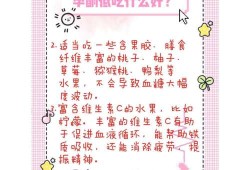 孕酮低吃什么好?
2.适当吃一些含果胶、膳食
纤维丰富的桃子、柚子、
草莓、猕猴桃、鸭梨等
水果,不会导致血糖大幅
度波动。
3.富含维生素C的水果,比如
柠檬。丰富的维生素C有助
于促进血液循环,能帮助铁
质吸收,还能消除疲劳、提
振精神。